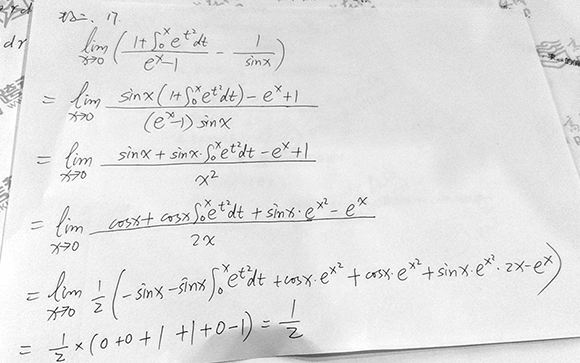 数二. 17.
lim x→0 ( (1+∫₀ˣ e^{t²}dt)/(eˣ-1) - 1/sinx )
= lim x→0 (sinx(1+∫₀ˣ e^{t²}dt) - eˣ+1)/((eˣ-1) sinx)
= lim x→0 (sinx + sinx·∫₀ˣ e^{t²}dt - eˣ+1)/x²
= lim x→0 (cosx + cosx∫₀ˣ e^{t²}dt + sinx·e^{x²} - eˣ)/2x
= lim x→0 1/2 (-sinx - sinx∫₀ˣ e^{t²}dt + cosx·e^{x²} + cosx·e^{x²} + sinx·e^{x²}·2x - eˣ)
= 1/2 × (0+0+1+1+0-1) = 1/2